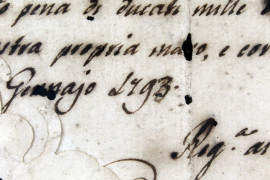 pena di ducati mille
propria mano, e con
Gennajo 1793.
Reg.ª